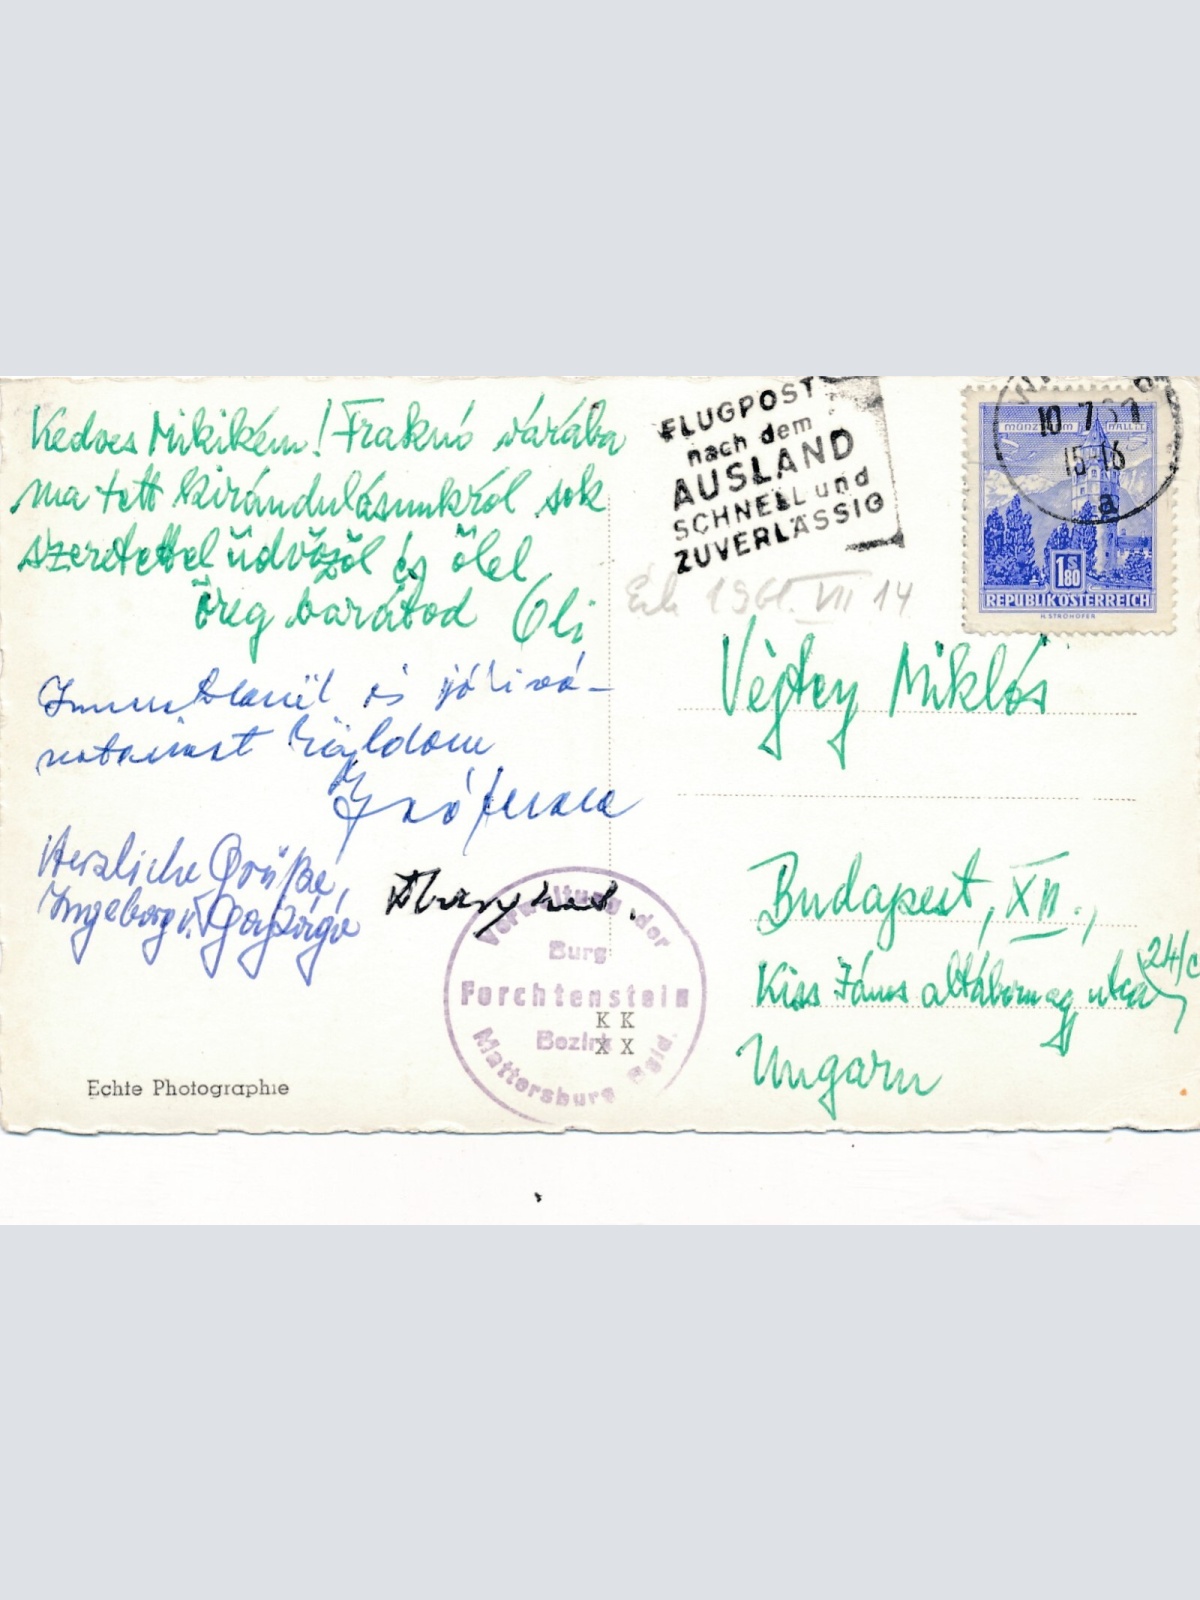 Kedves Mikikém! Fraknó várába
ma tett kirándulásunkról sok
szeretettel üdvözöl és ölel
öreg barátod Oli
Ismeretlenül is jókívá-
natainat küldom
Herzliche Grüße,
Ingeborg v.
Echte Photographie
FLUGPOST
nach dem
AUSLAND
SCHNELL und
ZUVERLÄSSIG
10.7.61
15-16
a
MÜNZTURM HALL I.T.
1 S 80
REPUBLIK ÖSTERREICH
H. STROHOFER
Érk 1961. VII 14
Vejtey Miklós
Budapest, XII.,
Kiss János altábornagy utca 24/c
Ungarn
Verwaltung der
Burg
Forchtenstein
Bezirk
Mattersburg Bgld.
K K
X X